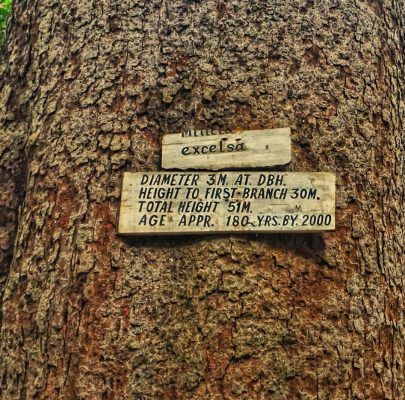 excelsa
DIAMETER 3M. AT. DBH.
HEIGHT TO FIRST-BRANCH 30M.
TOTAL HEIGHT 51M.
AGE APPR. 180 YRS. BY. 2000